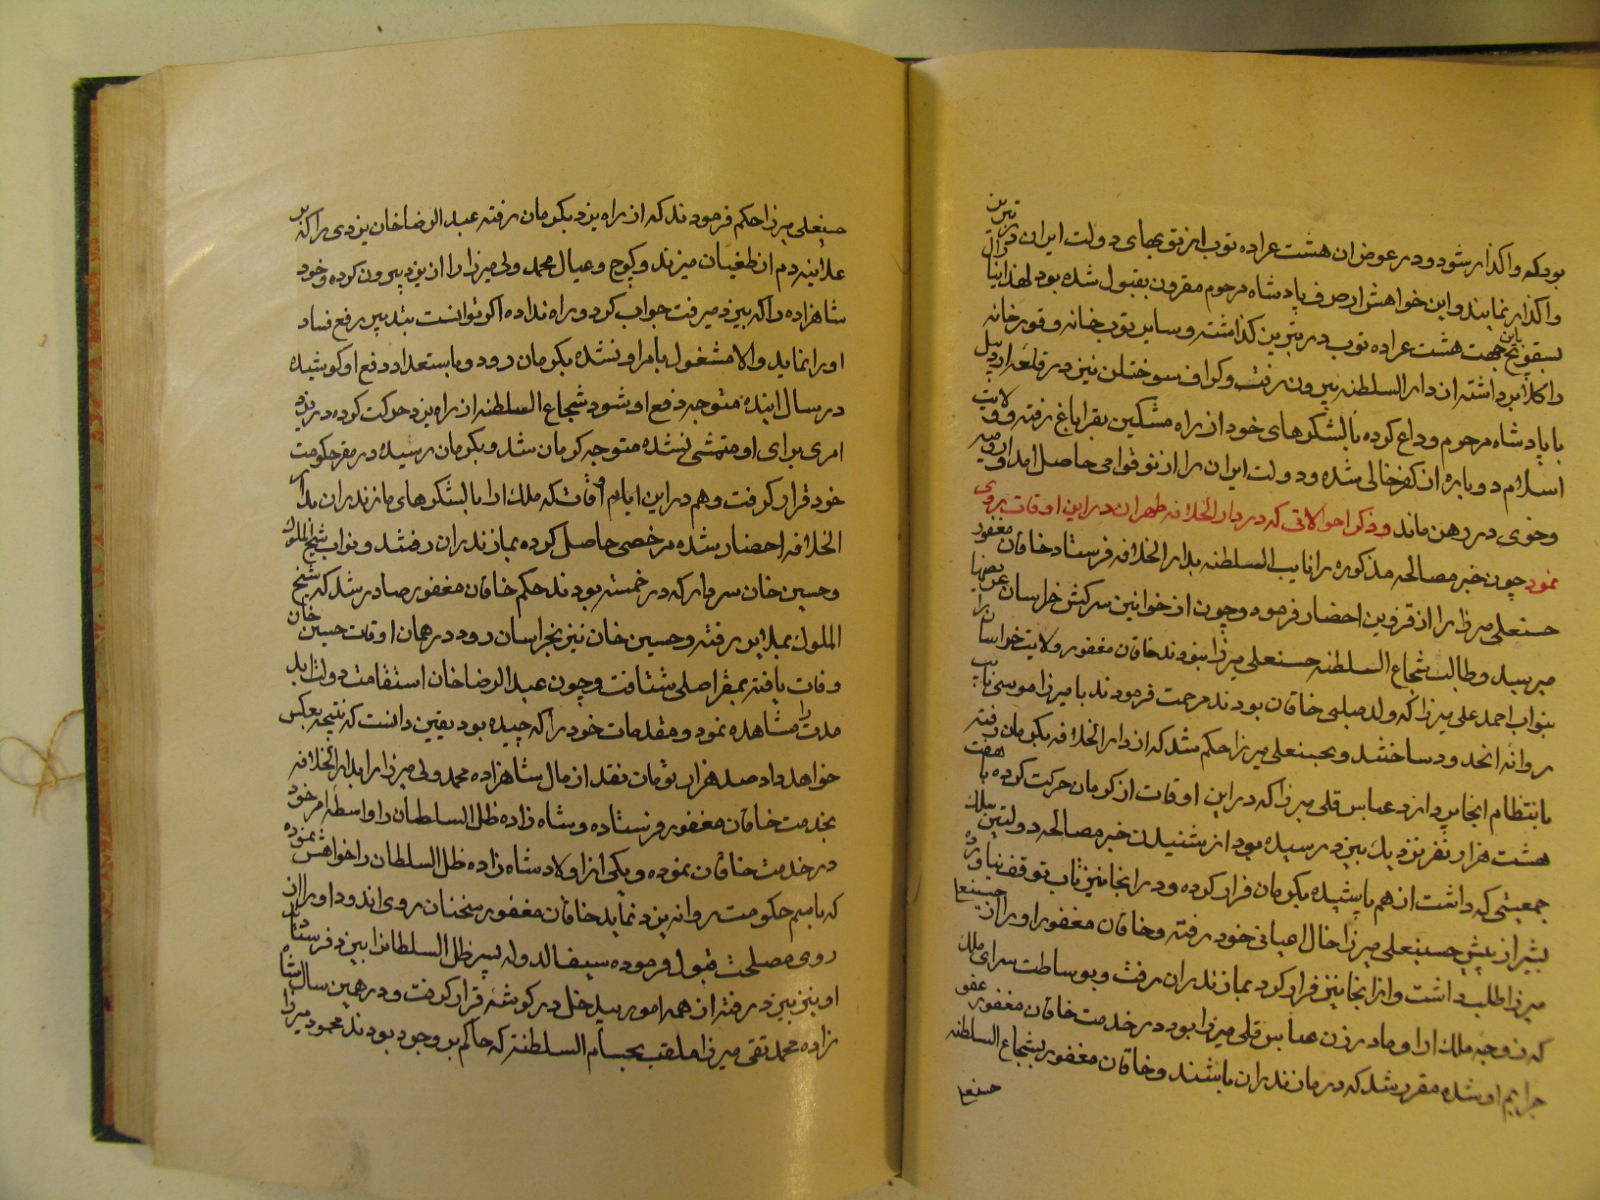 بودکه واکذار شود و در عوض ان هشت عراده توپ از توپهای دولت ایران در تبریز
واکذار نمایند و این خواهش از طرف پادشاه مرحوم مقرون بقبول شده بود لهذا
جهت هشت عراده توپ در تبریز کذاشته و سایر توپخانه و قورخانه
را کلا برداشته از دار السلطنه بیرون رفت و کراف سوختلن نیز در قلعه اردبیل
با پادشاه مرحوم وداع کرده با لشکرهای خود از راه مشکین بقراباغ رفته و ولایت
اسلام دوباره از کفر خالی شده و دولت ایران را از نو قوامی حاصل امد
و خوی در رهن ماند و ذکر احوالاتی که در دار الخلافه طهران در این اوقات روی
نمود چون خبر مصالحه مذکوره را نایب السلطنه بدار الخلافه فرستاد خاقان مغفور
حسنعلی میرزا را از قزوین احضار فرمود و چون از خوانین سرکش خراسان
میرسید و طالب شجاع السلطنه حسنعلی میرزا نبودند خاقان مغفور ولایت خراسان را
بنواب احمد علی میرزا که ولد صلبی خاقان بودند مرحمت فرمودند با میرزا موسی نایب
روانه انحدود ساختند و بحسنعلی میرزا حکم شد که از دار الخلافه بکرمان رفته
بانتظام انجا پردازد عباس قلی میرزا که در این اوقات از کرمان حرکت کرده با هفت
هشت هزار نفر نزدیک بیزد رسیده بود از شنیدن خبر مصالحه دولتین
جمعیتی که داشت از هم پاشیده بکرمان فرار کرده و در انجا نیز تاب توقف نیاورده
پیش حسینعلی میرزا خال اعیانی خود رفته و خاقان مغفور او را از حسینعلی
میرزا طلب داشت و از انجا نیز فرار کرد بمازندران رفت و بوساطت سرای ملک
که زوجه ملک ارا و مادر زن عباس قلی میرزا بود در خدمت خاقان مغفور عفو
جرایم او شده مقرر شد که در مازندران باشند و خاقان مغفور بشجاع السلطنه
حسنعلی
حسنعلی میرزا حکم فرمودند که از راه یزد بکرمان رفته عبد الرضا خان یزدی را که
علانیه دم از طغیان میزند و کوچ و عیال محمد ولی میرزا را از یزد بیرون کرده و خود
شاهزاده را که بیزد میرفت جواب کرد و راه نداده اکر توانست بتدبیر رفع فساد
او را نماید والا مشغول بامر او نشده بکرمان رود و باستعداد دفع او کوشیده
در سال اینده متوجه دفع او شود شجاع السلطنه از راه یزد حرکت کرده در یزد
امری برای او متمشی نشده متوجه کرمان شد و بکرمان رسیده در مقر حکومت
خود قرار کرفت و هم در این ایام و اوقات که ملک ارا با لشکرهای مازندران بدار
الخلافه احضار شده مرخصی حاصل کرده بمازندران رفتند و نواب شیخ الملوک
و حسین خان سردار که در خمسه بودند حکم خاقان مغفور صادر شد که شیخ
الملوک بملایر رفته و حسین خان نیز بخراسان رود در همان اوقات حسین خان
وفات یافته بمقر اصلی شتافت و چون عبد الرضا خان استقامت دولت ابد
مدت را مشاهده نمود و مقدمات خود را که چیده بود یقین دانست که نتیجه بعکس
خواهد داد صد هزار تومان نقد از مال شاهزاده محمد ولی میرزا را بدار الخلافه
بخدمت خاقان مغفور فرستاده و شاه زاده ظل السلطان را واسطه امر خود
در خدمت خاقان نموده و یکی از اولاد شاه زاده ظل السلطان را خواهش نموده
که باسم حکومت روانه یزد نماید خاقان مغفور سخنان روی اندود او را از
روی مصلحت قبول فرموده سیف الدوله پسر ظل السلطان را بیزد فرستاد
او نیز بیزد رفته از همه امور بیدخل در کوشه قرار کرفت و در همین سال شاه
زاده محمد تقی میرزا ملقب بحسام السلطنه که حاکم بروجرد بودند محمود میرزا